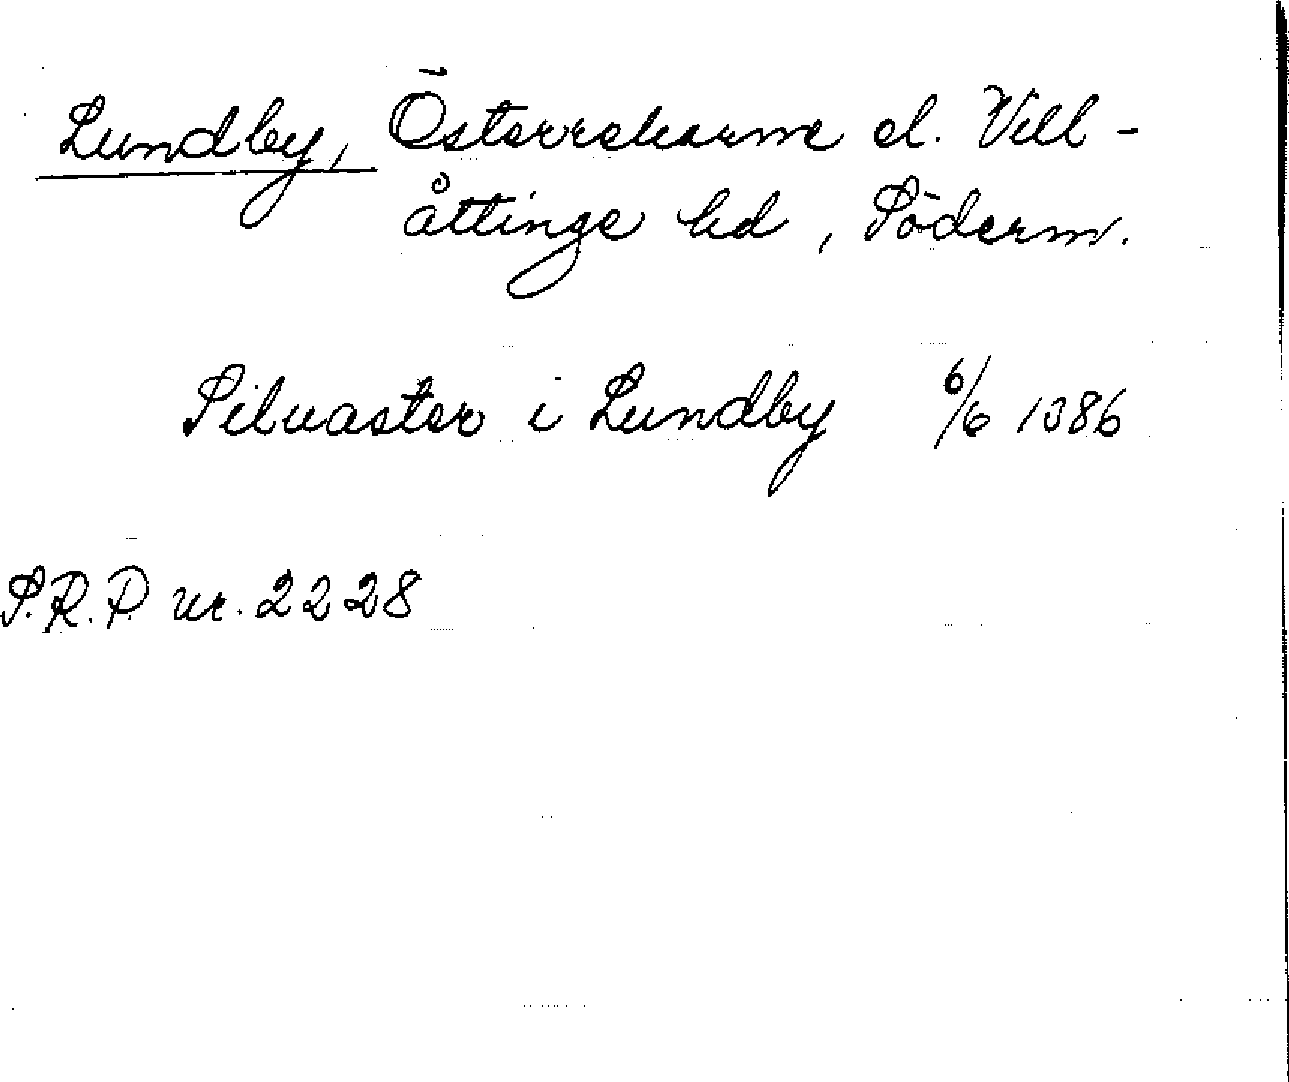 Lundby, Österrekarne el. Vill-
åttinge hd, Söderm.
Siluaster i Lundby 6/6 1386
S.R.P. nr. 2228